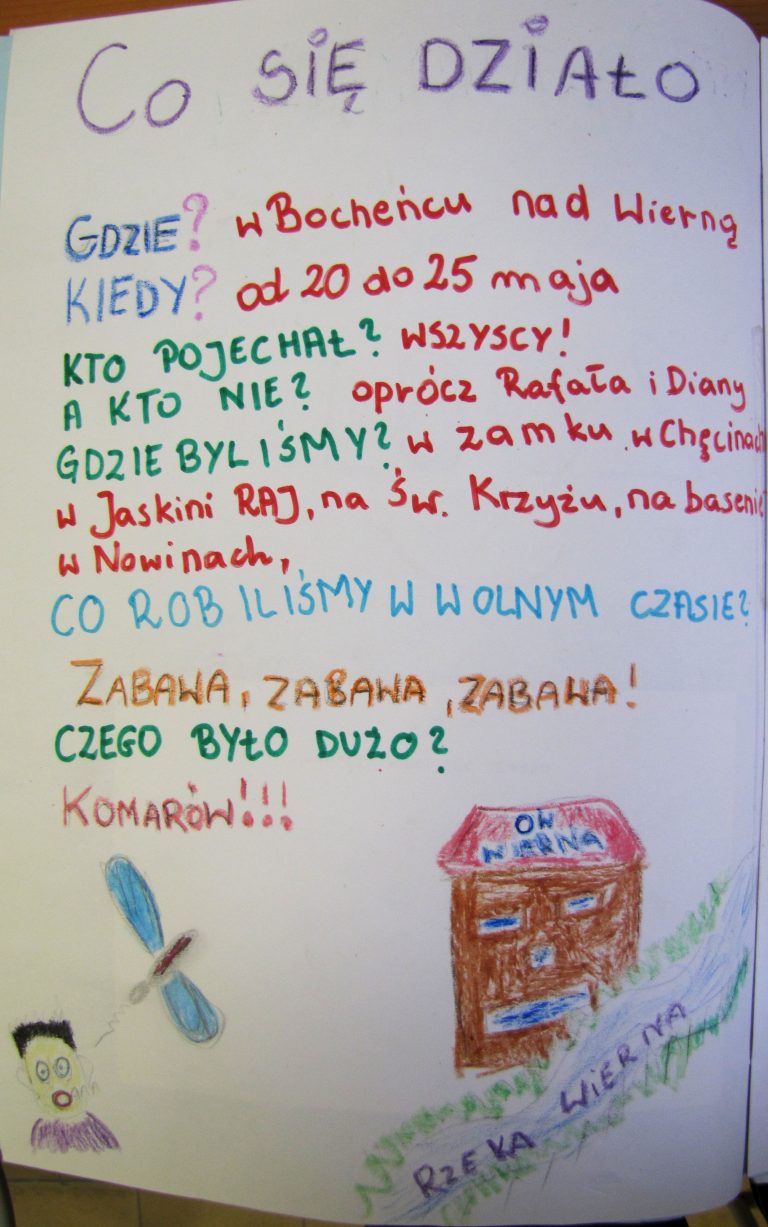 CO SIĘ DZIAŁO
GDZIE? w Bocheńcu nad Wierną
KIEDY? od 20 do 25 maja
KTO POJECHAŁ? WSZYSCY!
A KTO NIE? oprócz Rafała i Diany
GDZIE BYLIŚMY? w zamku w Chęcinach
w Jaskini RAJ, na Św. Krzyżu, na basenie
w Nowinach,
CO ROBILIŚMY W WOLNYM CZASIE?
ZABAWA, ZABAWA, ZABAWA!
CZEGO BYŁO DUŻO?
KOMARÓW!!!
OW
WIERNA
RZEKA WIERNA